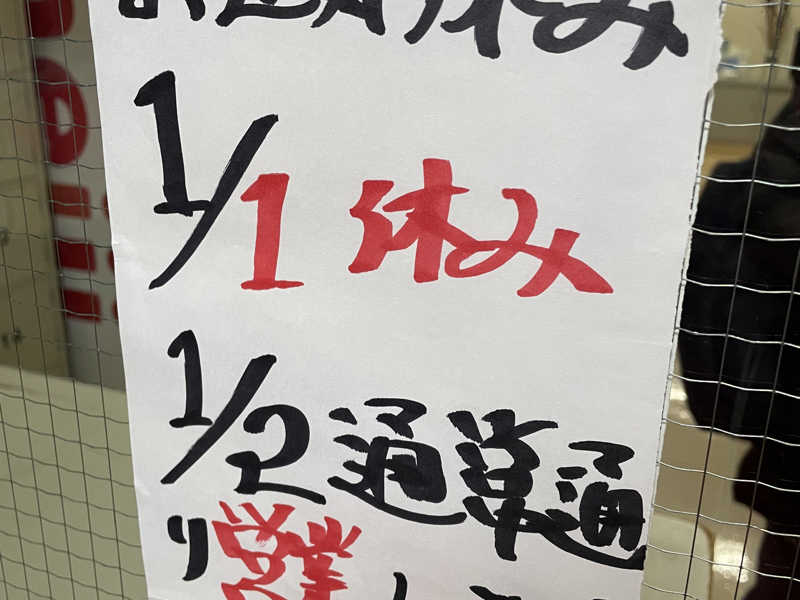 休み
1/1 休み
1/2 通常通
り営業